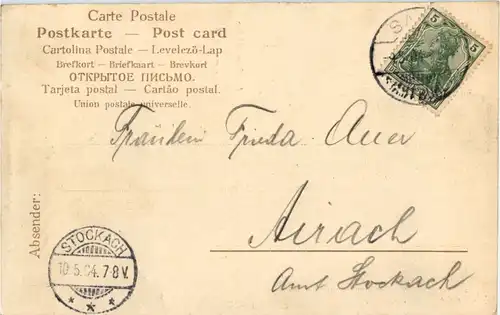 Carte Postale
Postkarte — Post card
Cartolina Postale — Levelező-Lap
Brefkort — Briefkaart — Brevkort
ОТКРЫТОЕ ПИСЬМО.
Tarjeta postal — Cartão postal.
Union postale universelle.
5 5
Fräulein Frieda Auer
Airach
Amt Stockach
Absender:
STOCKACH
10.5.04.7-8V.